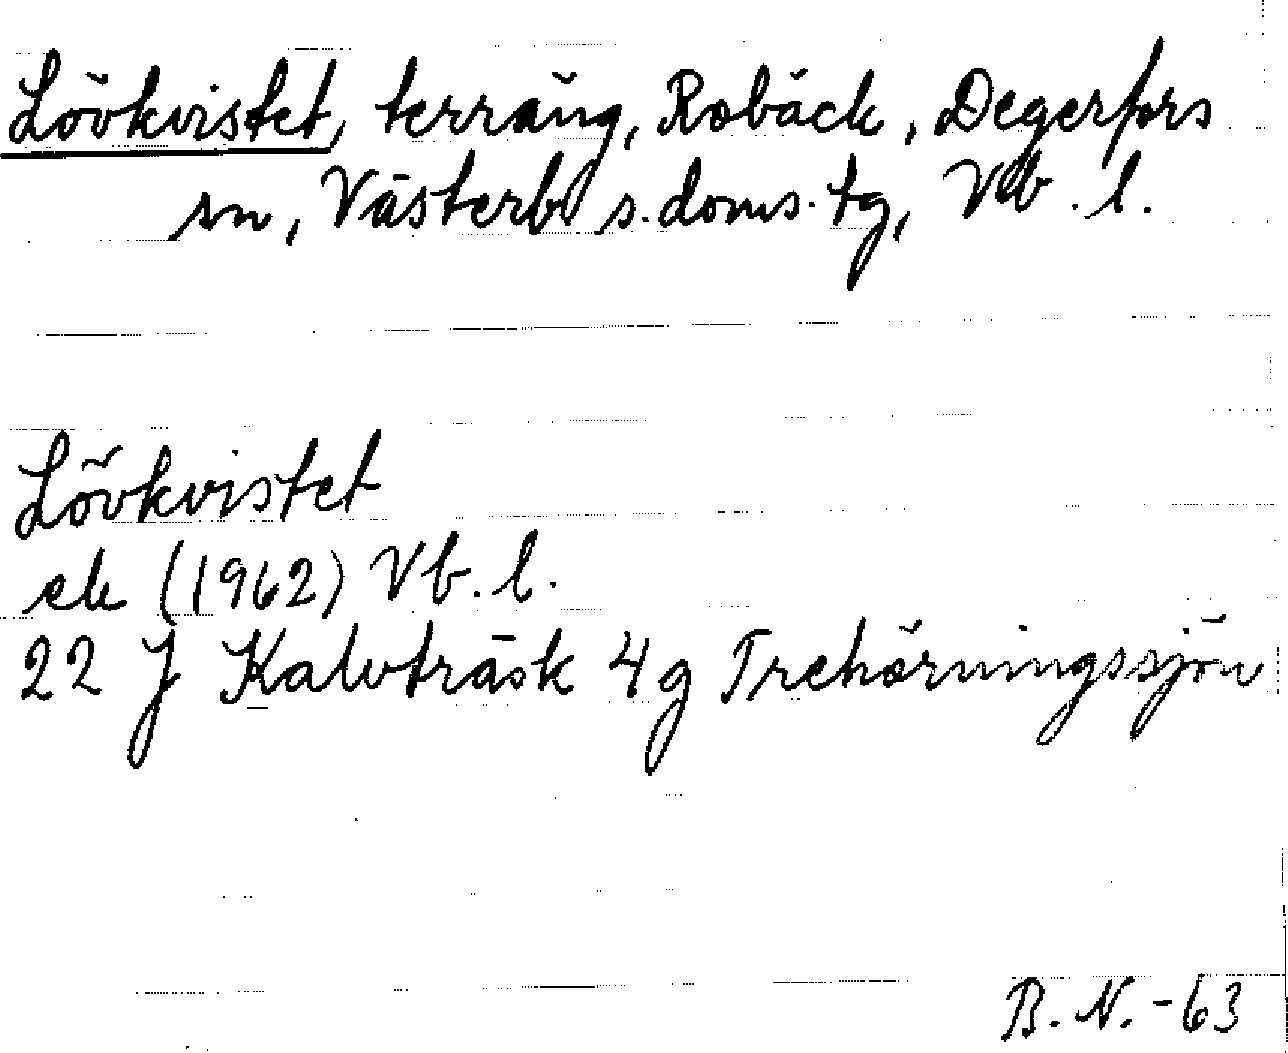 Lövkvistet, terräng, Robäck, Degerfors
sn, Västerb s. doms. tg, Vb. l.
Lövkvistet
ek (1962) Vb. l.
22 J Kalvträsk 4g Trehörningssjön
B. N. -63